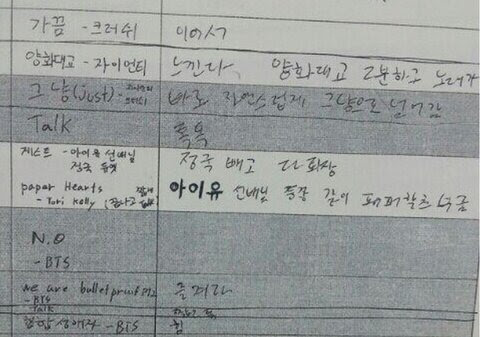 가끔 - 크러쉬 이어서
양화대교 - 자이언티 느낀다, 양화대교 2분하고
그냥(Just) - 자이언티 크러쉬 바로 자연스럽게 그냥으로 넘어감
Talk 톡톡
게스트 - 아이유 선배님 정국 듀엣 정국 빼고 다 퇴장
paper Hearts - Tori Kelly 아이유 선배님 등장 같이 페퍼할츠 부름
N.O
- BTS
we are bulletproof pt2 - BTS 즐겨라
Talk
상남자 - BTS 힘